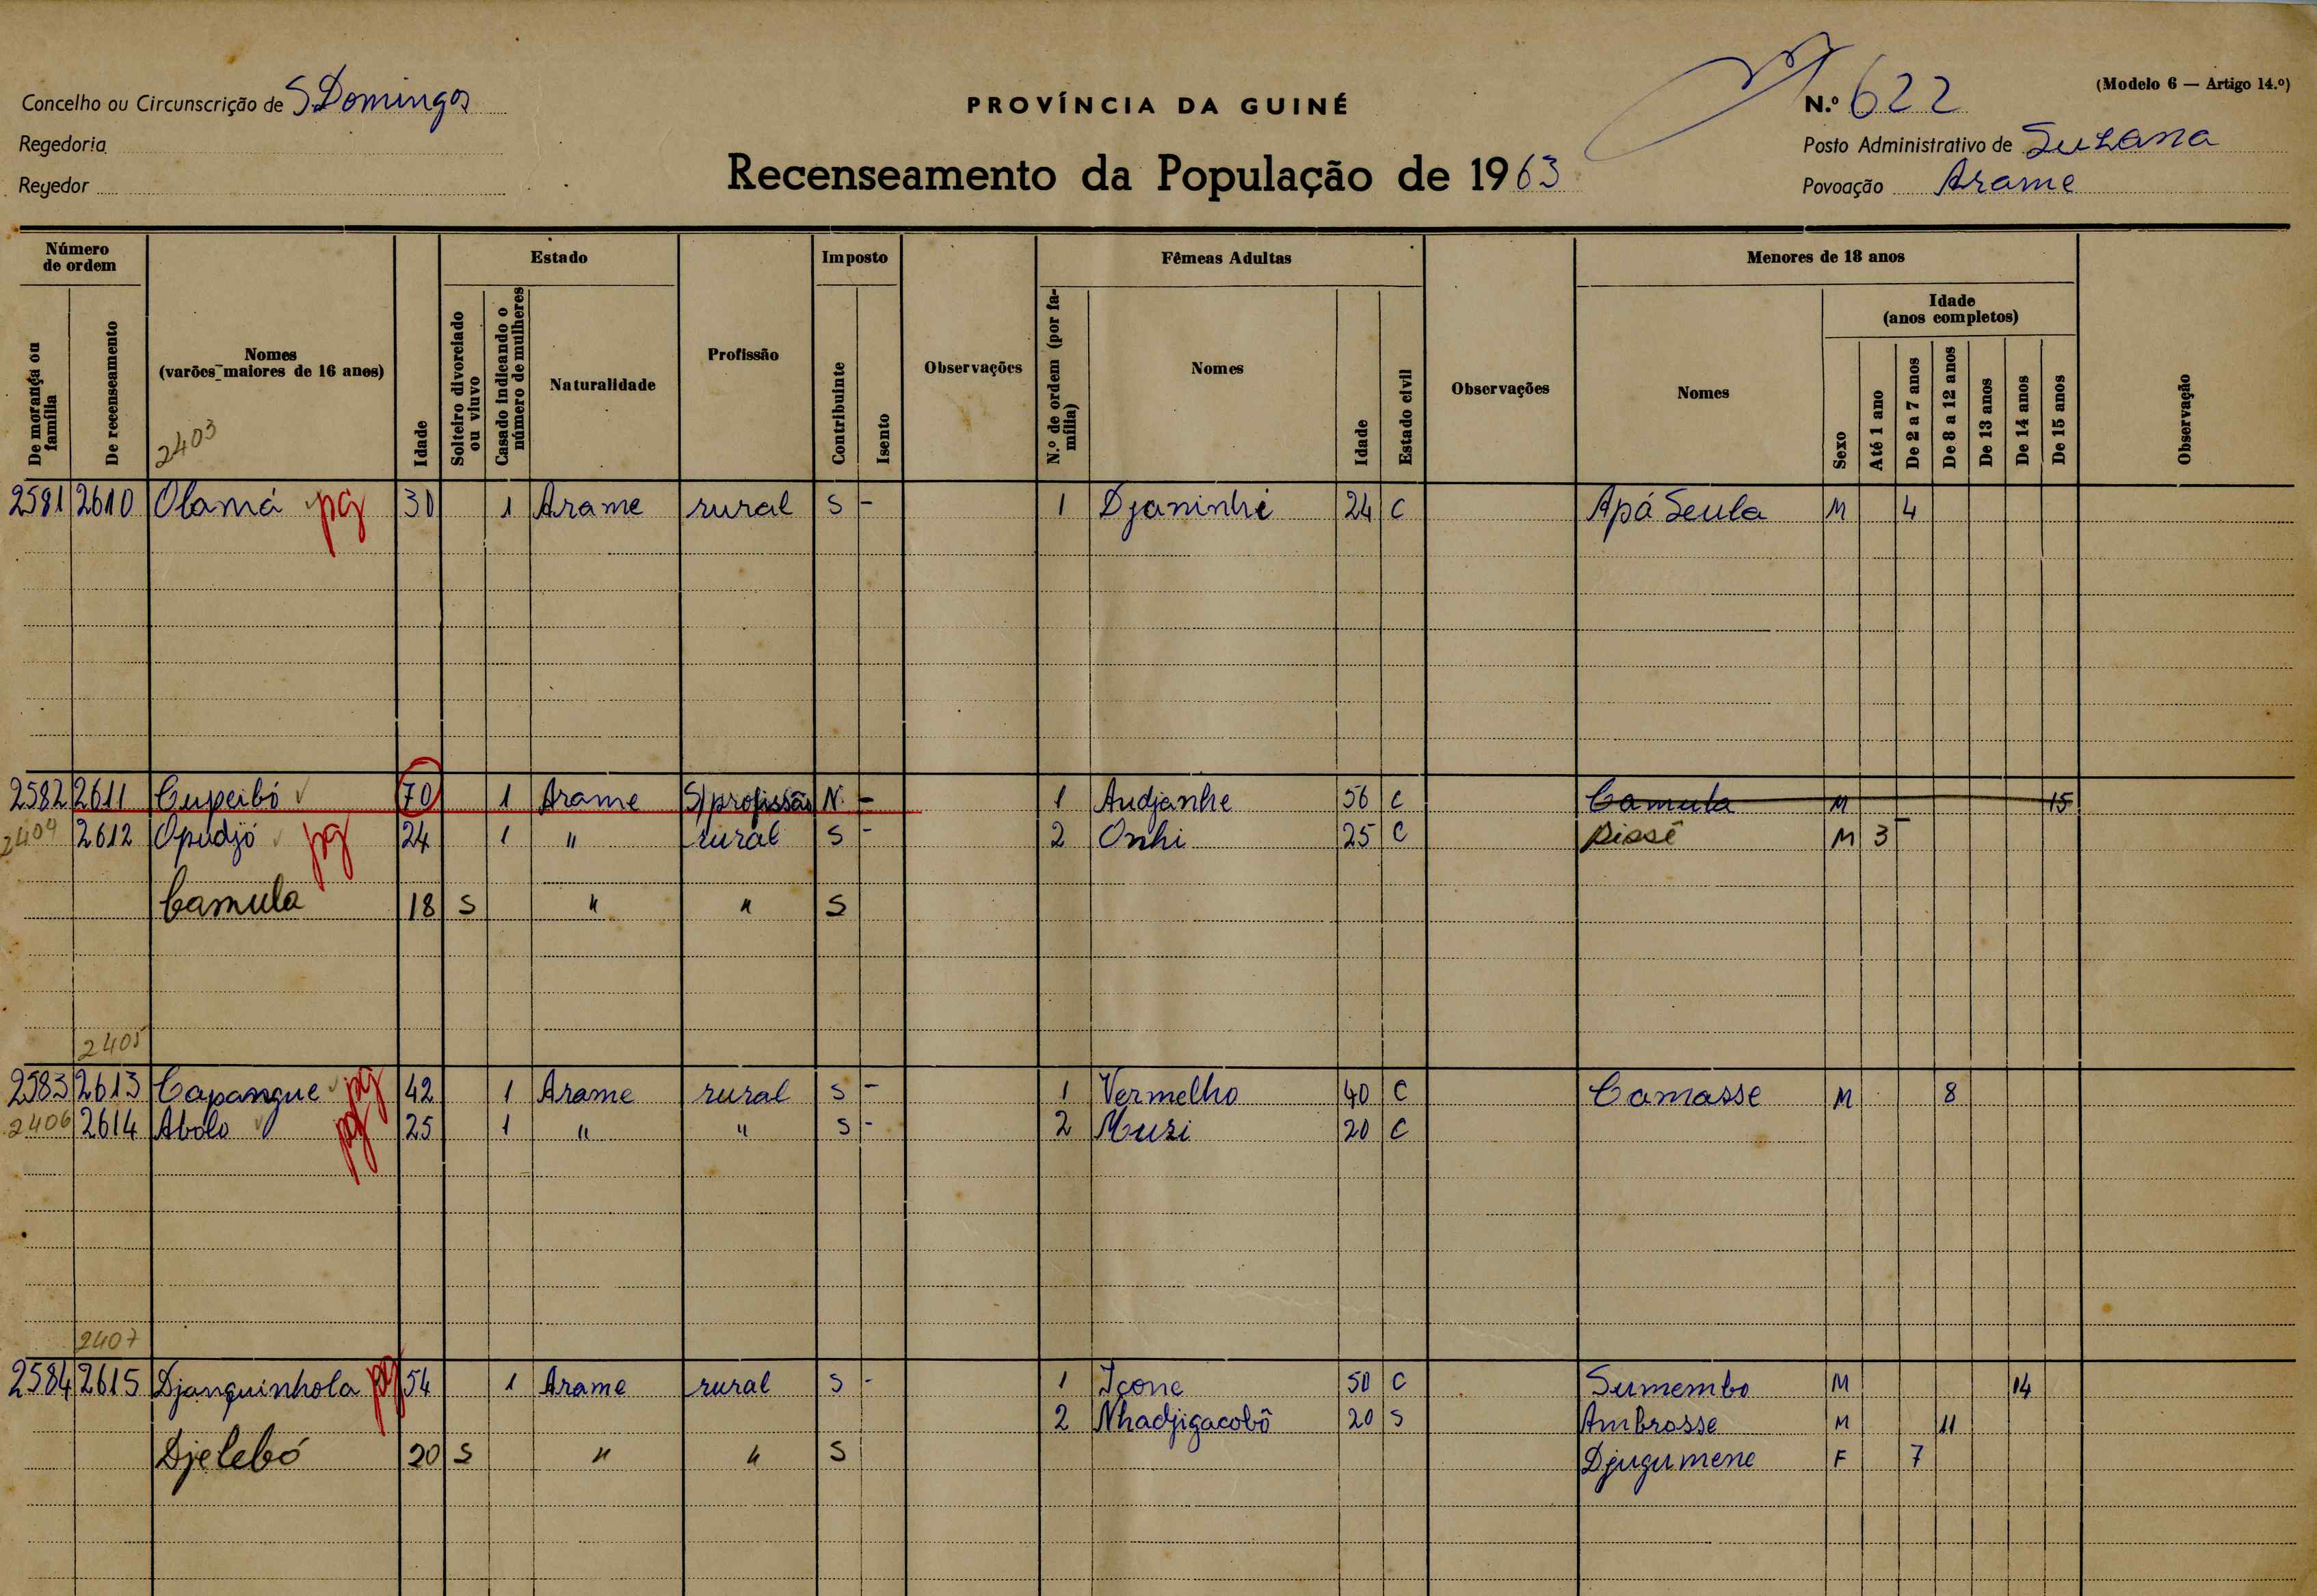 Concelho ou Circunscrição de S. Domingos
Regedoria
Regedor
PROVÍNCIA DA GUINÉ
Recenseamento da População de 1963
(Modelo 6 — Artigo 14.º)
N.º 622
Posto Administrativo de Suzana
Povoação Arame
Número de ordem
De morança ou família
De recenseamento
Nomes (varões maiores de 16 anos)
2403
Idade
Estado
Solteiro divorciado ou viuvo
Casado indicando o número de mulheres
Naturalidade
Profissão
Imposto
Contribuinte
Isento
Observações
Fêmeas Adultas
N.º de ordem (por família)
Nomes
Idade
Estado civil
Observações
Menores de 18 anos
Nomes
Sexo
Idade (anos completos)
Até 1 ano
De 2 a 7 anos
De 8 a 12 anos
De 13 anos
De 14 anos
De 15 anos
Observação
2581 2610 Olamá pg 30 1 Arame rural S - 1 Djaninhi 24 C Apá Seula M 4
2582 2611 Cupeibó 70 1 Arame S/profissão N. - 1 Audjanhe 56 C Camula M 15
2404 2612 Opudjó pg 24 1 " rural S - 2 Onhi 25 C Dissê M 3
Camula 18 S " " S
2405
2583 2613 Capangue pg 42 1 Arame rural S - 1 Vermelho 40 C Camasse M 8
2406 2614 Abolo pg 25 1 " " S - 2 Muzi 20 C
2407
2584 2615 Djanquinhola pg 54 1 Arame rural S - 1 Içone 50 C Sumembo M 14
2 Nhadjigacobô 20 S Ambrosse M 11
Djelebó 20 S " " S Djugumene F 7